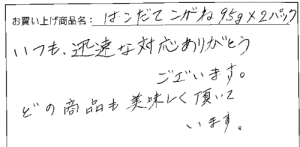 お買い上げ商品名： はこだてこがね 95g×2パック
いつも、迅速な対応ありがとう
ございます。
どの商品も美味しく頂いて
います。